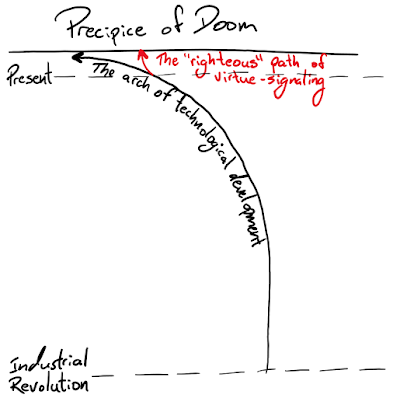 Precipice of Doom
The "righteous" path of
virtue-signaling
Present
The arch of technological development
Industrial
Revolution